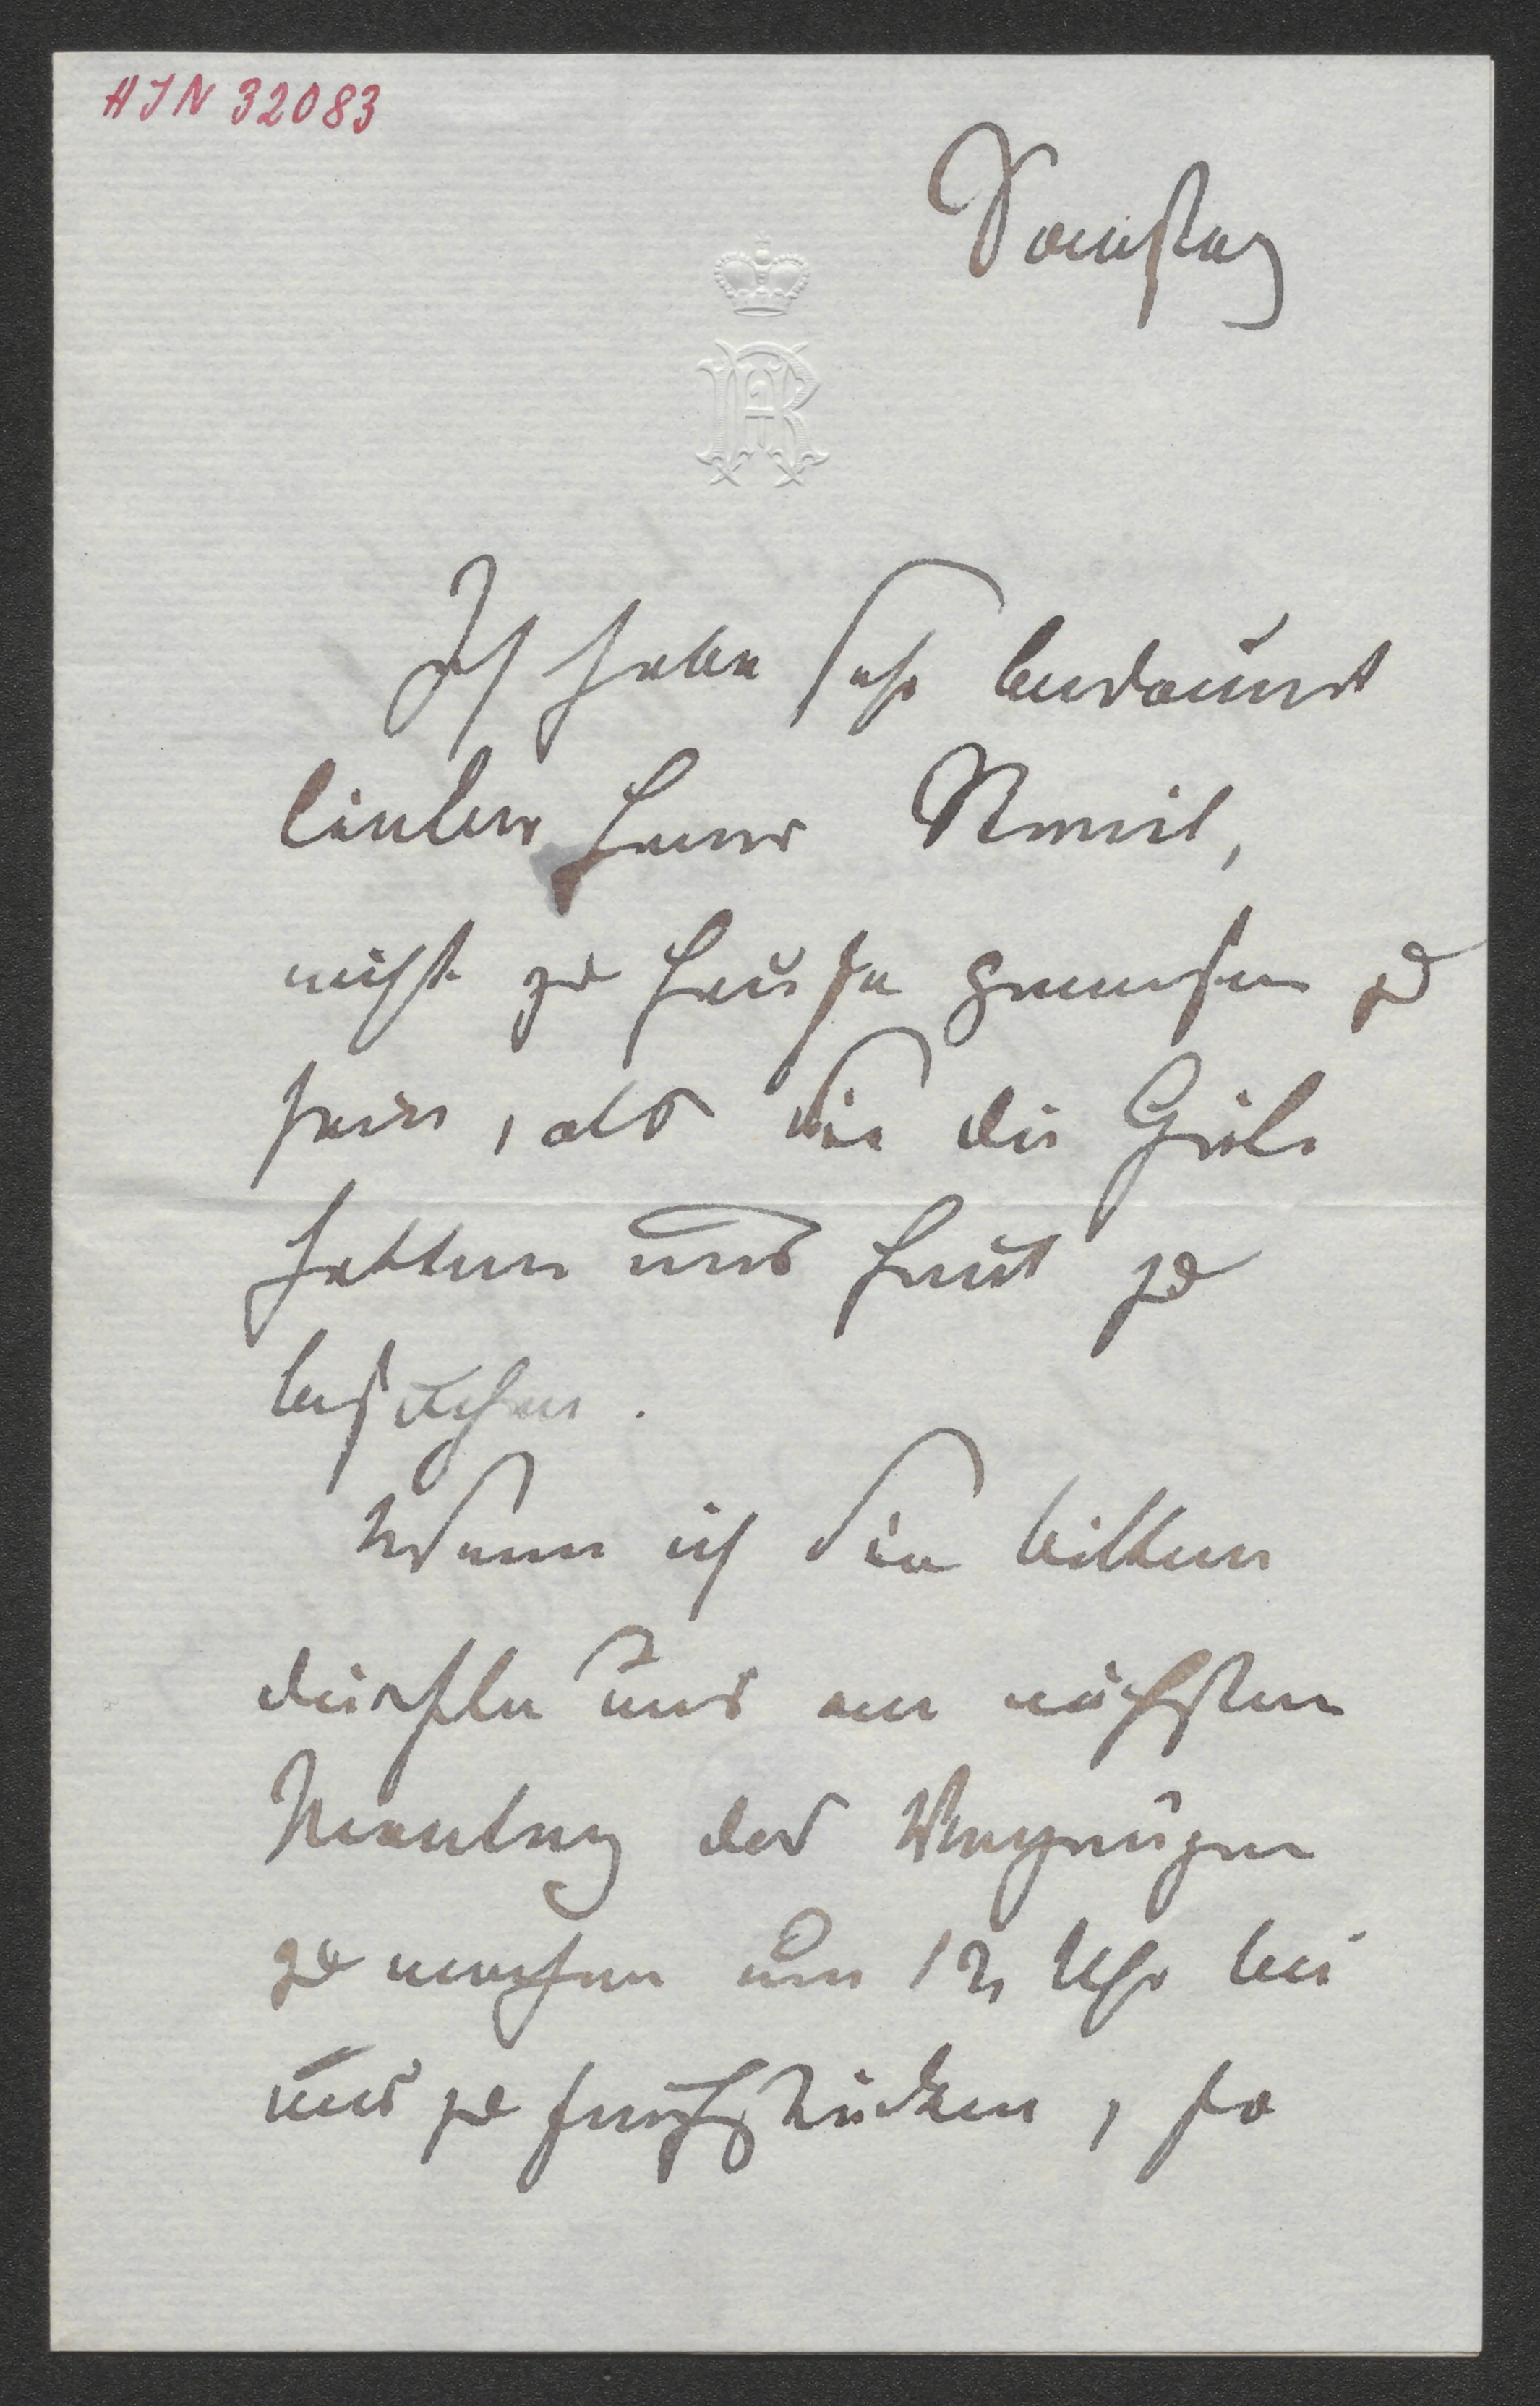 HJN 32083
Samstag
AR
Ich habe sehr bedauert
lieber Herr
nicht zu Hause gewesen zu
sein, als Sie die Güte
hatten uns heut zu
besuchen.
Wenn ich Sie bitten
dürfte uns am nächsten
Montag das Vergnügen
zu machen um 12 Uhr bei
uns zu frühstücken, so